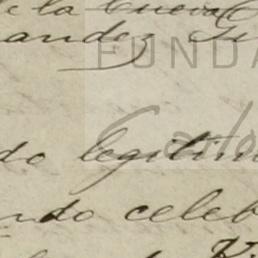 de la Cueva
andez
FUNDA
Carlo
do legitim
ndo celeb